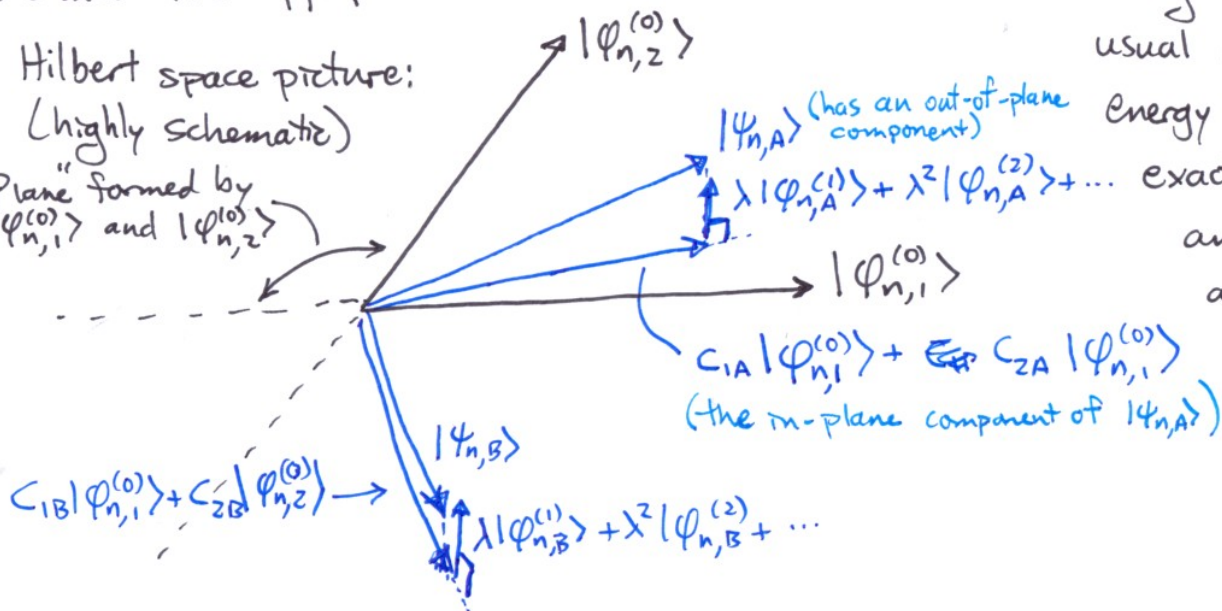 |φ_{n,2}^{(0)}⟩
Hilbert space picture:
(highly schematic)
"Plane" formed by
φ_{n,1}^{(0)}⟩ and |φ_{n,2}^{(0)}⟩
usual
energy
exac
|ψ_{n,A}⟩ (has an out-of-plane
component)
λ|φ_{n,A}^{(1)}⟩ + λ²|φ_{n,A}^{(2)}⟩ + ...
|φ_{n,1}^{(0)}⟩
C_{1A}|φ_{n,1}^{(0)}⟩ + C_{2A}|φ_{n,1}^{(0)}⟩
(the in-plane component of |ψ_{n,A}⟩)
|ψ_{n,B}⟩
C_{1B}|φ_{n,1}^{(0)}⟩ + C_{2B}|φ_{n,2}^{(0)}⟩ →
λ|φ_{n,B}^{(1)}⟩ + λ²|φ_{n,B}^{(2)} + ...